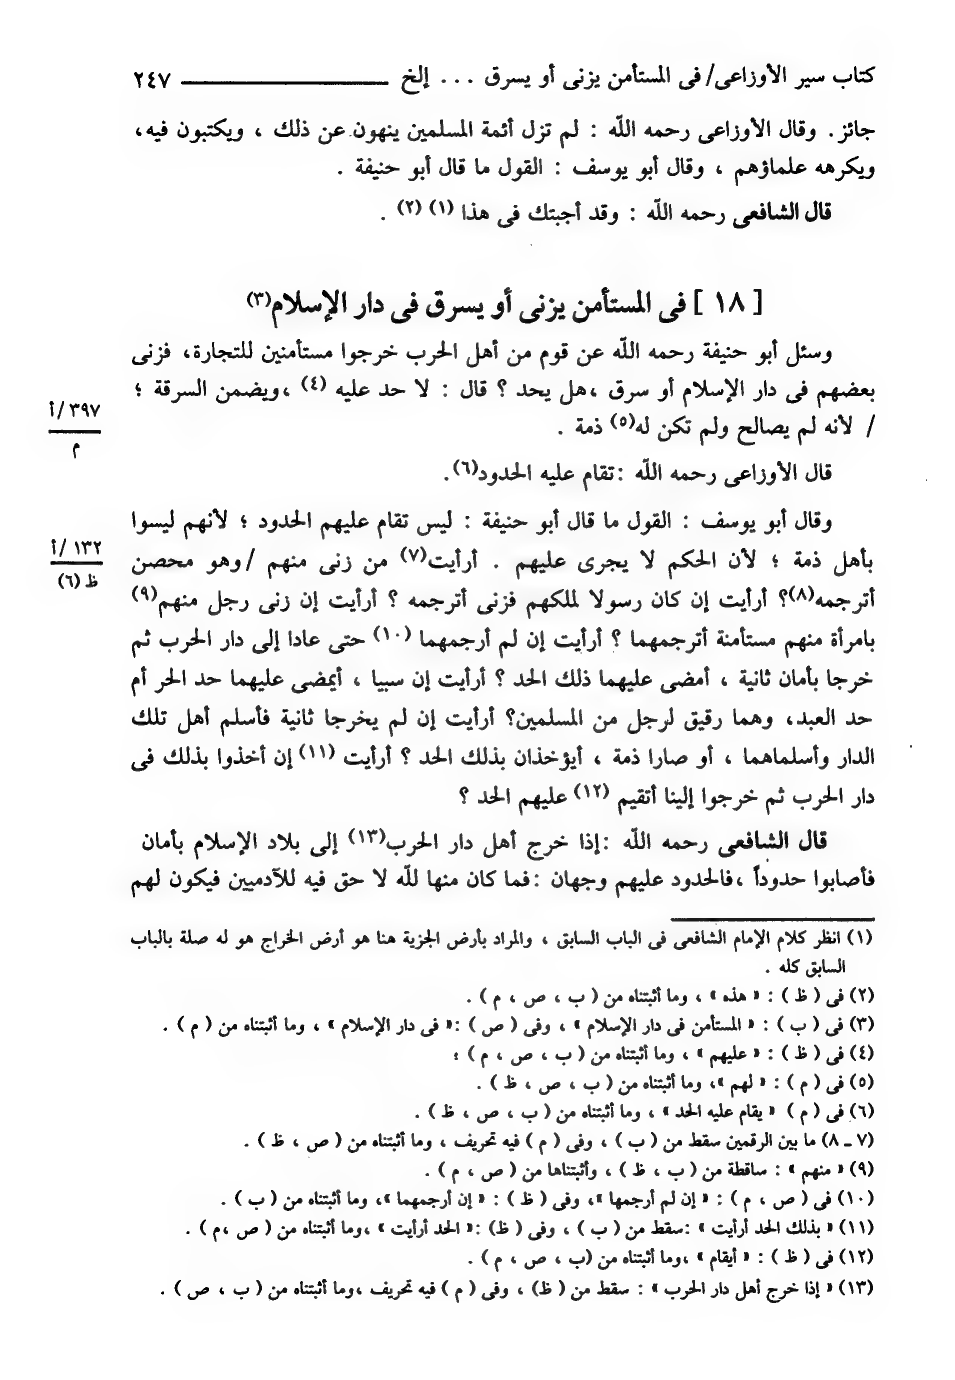 كتاب سير الأوزاعى/ فى المستأمن يزنى أو يسرق ... إلخ ٢٤٧
جائز. وقال الأوزاعى رحمه الله : لم تزل أئمة المسلمين ينهون عن ذلك ، ويكتبون فيه،
ويكرهه علماؤهم ، وقال أبو يوسف : القول ما قال أبو حنيفة .
قال الشافعى رحمه الله : وقد أجبتك فى هذا (١) (٢) .
[ ١٨ ] فى المستأمن يزنى أو يسرق فى دار الإسلام(٣)
وسئل أبو حنيفة رحمه الله عن قوم من أهل الحرب خرجوا مستأمنين للتجارة، فزنى
بعضهم فى دار الإسلام أو سرق ،هل يحد ؟ قال : لا حد عليه (٤) ،ويضمن السرقة ؛
/ لأنه لم يصالح ولم تكن له(٥) ذمة .
٣٩٧/ أ
م
قال الأوزاعى رحمه الله :تقام عليه الحدود(٦).
وقال أبو يوسف : القول ما قال أبو حنيفة : ليس تقام عليهم الحدود ؛ لأنهم ليسوا
بأهل ذمة ؛ لأن الحكم لا يجرى عليهم . أرأيت(٧) من زنى منهم /وهو محصن
١٣٢ /أ
ظ (٦)
أترجمه(٨)؟ أرأيت إن كان رسولا لملكهم فزنى أترجمه ؟ أرأيت إن زنى رجل منهم(٩)
بامرأة منهم مستأمنة أترجمهما ؟ أرأيت إن لم أرجمهما (١٠) حتى عادا إلى دار الحرب ثم
خرجا بأمان ثانية ، أمضى عليهما ذلك الحد ؟ أرأيت إن سبيا ، أيمضى عليهما حد الحر أم
حد العبد، وهما رقيق لرجل من المسلمين؟ أرأيت إن لم يخرجا ثانية فأسلم أهل تلك
الدار وأسلماهما ، أو صارا ذمة ، أيؤخذان بذلك الحد ؟ أرأيت (١١) إن أخذوا بذلك فى
دار الحرب ثم خرجوا إلينا أتقيم (١٢) عليهم الحد ؟
قال الشافعى رحمه الله :إذا خرج أهل دار الحرب(١٣) إلى بلاد الإسلام بأمان
فأصابوا حدوداً ،فالحدود عليهم وجهان :فما كان منها لله لا حق فيه للآدميين فيكون لهم
(١) انظر كلام الإمام الشافعى فى الباب السابق ، والمراد بأرض الجزية هنا هو أرض الخراج هو له صلة بالباب
السابق كله .
(٢) فى ( ظ ) : « هذه » ، وما أثبتناه من ( ب ، ص ، م ) .
(٣) فى ( ب ) : « المستأمن فى دار الإسلام » ، وفى ( ص ) :« فى دار الإسلام » ، وما أثبتناه من ( م ) .
(٤) فى ( ظ ) : « عليهم » ، وما أثبتناه من ( ب ، ص ، م ) ؛
(٥) فى ( م ) : « لهم »، وما أثبتناه من ( ب ، ص ، ظ ) .
(٦) فى ( م ) « يقام عليه الحد » ، وما أثبتناه من ( ب ، ص ، ظ ) .
(٧ ـ ٨) ما بين الرقمين سقط من ( ب ) ، وفى ( م ) فيه تحريف ، وما أثبتناه من ( ص ، ظ ) .
(٩) « منهم » : ساقطة من ( ب ، ظ ) ، وأثبتناها من ( ص ، م ) .
(١٠) فى ( ص ، م ) : « إن لم أرجمها »، وفى ( ظ ) : « إن أرجمهما »، وما أثبتناه من ( ب ) .
(١١) « بذلك الحد أرأيت » :سقط من ( ب ) ، وفى ( ظ) :« الحد أرأيت » ،وما أثبتناه من ( ص ،م ) .
(١٢) فى ( ظ ) : « أيقام » ،وما أثبتناه من (ب ، ص ، م ) .
(١٣) « إذا خرج أهل دار الحرب » : سقط من ( ظ) ، وفى ( م ) فيه تحريف ،وما أثبتناه من ( ب ، ص ) .